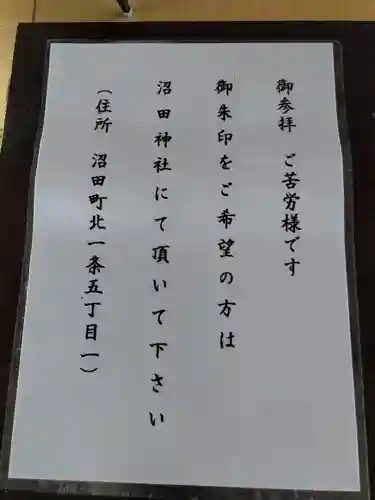 御参拝 ご苦労様です
御朱印をご希望の方は
沼田神社にて頂いて下さい
(住所 沼田町北一条五丁目一)